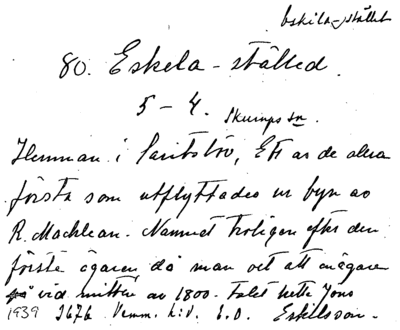 Eskila-stället
80. Eskela-ställed.
5-4. Skurups sn.
Hemman i Saritslöv, Ett av de allra
första som utflyttades ur byn av
R. Machlean. Namnet troligen efter den
förste ägaren, då man vet att en ägare
vid mitten av 1800-talet hette Jöns
1939 Vemm. h:d. Eskilsson.